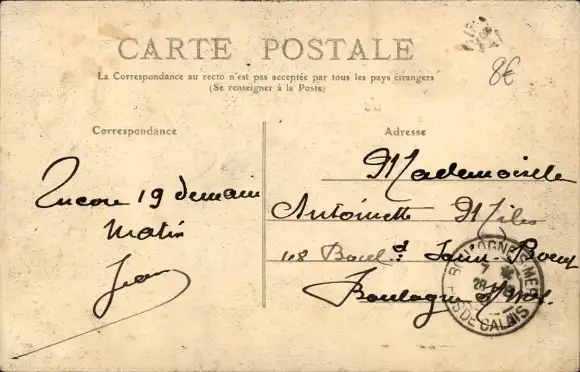 CARTE POSTALE
8€
La Correspondance au recto n'est pas acceptée par tous les pays étrangers
(Se renseigner à la Poste)
Correspondance
Adresse
Encore 19 demain
Matin
Jean
Mademoiselle
Antoinette
Boul.d
Boulogne s/Mer
BOULOGNE-S-MER
PAS DE CALAIS